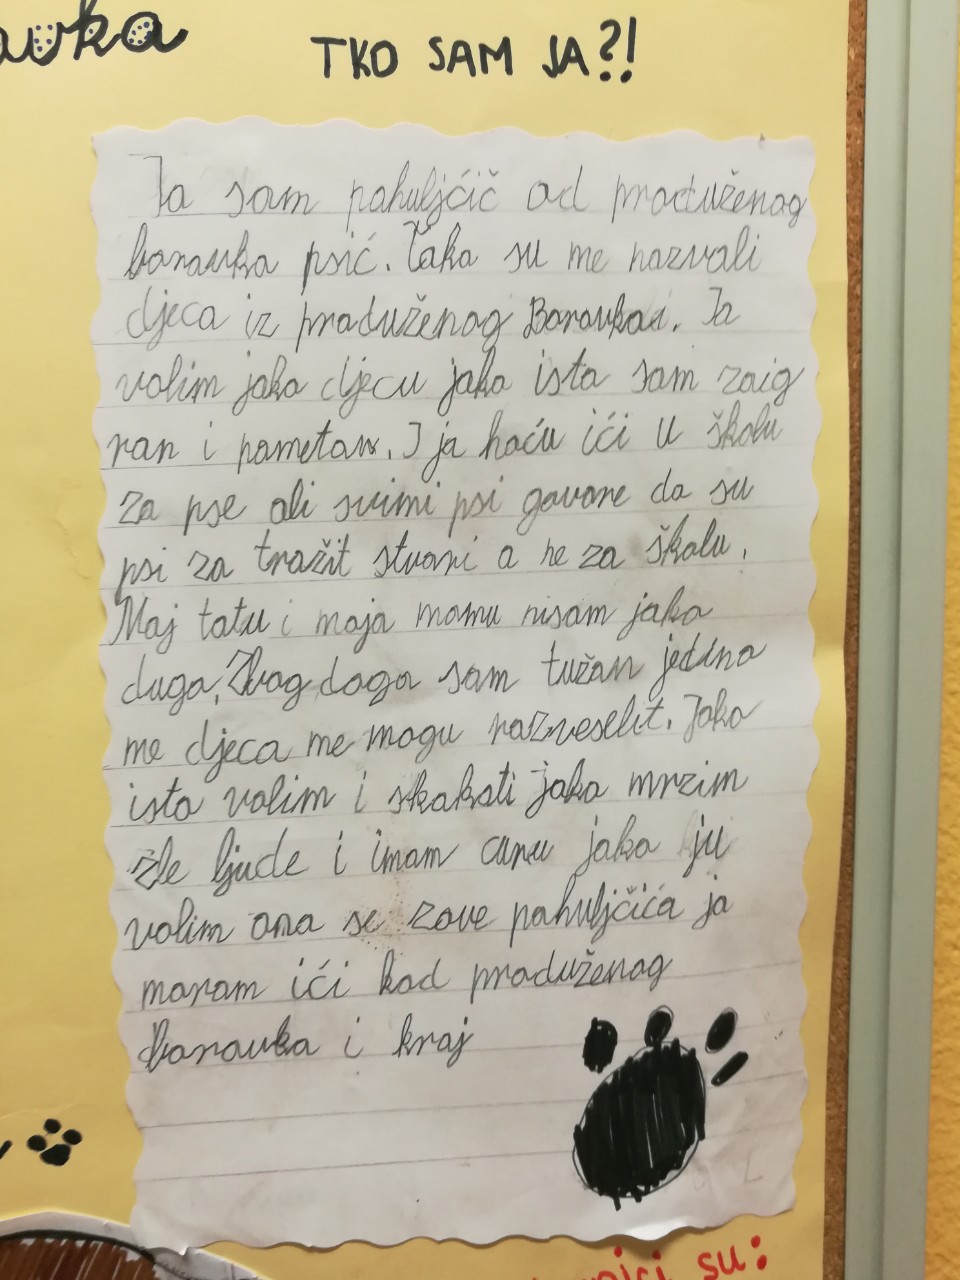 avka
TKO SAM JA?!
Ja sam pahuljćič od produženog
boravka psić. Tako su me nazvali
djeca iz produženog Boravka. Ja
volim jako djecu jako isto sam zaig
ran i pametan. I ja hoću ići u školu
za pse ali svimi psi govore da su
psi za tražit stvari a ne za školu.
Moj tatu i moja mamu nisam jako
dugo. Zbog doga sam tužan jedino
me djeca me mogu razveselit. Jako
isto volim i skakati jako mrzim
zle ljude i imam curu jako ju
volim ona se zove pahuljčića ja
moram ići kod produženog
boravka i kraj
su: